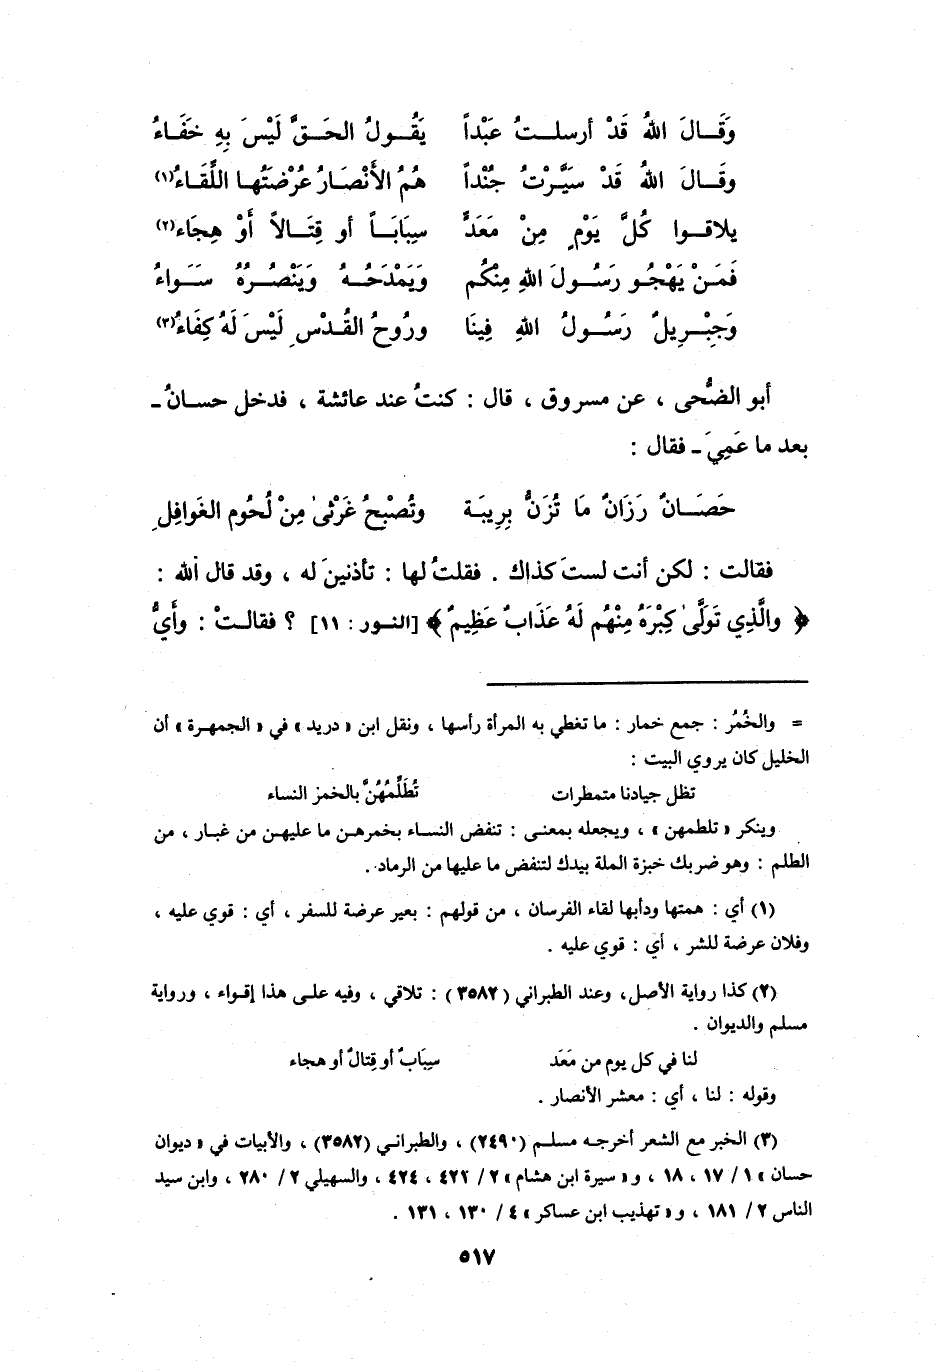 وَقَــالَ اللهُ قَدْ أرسلــتُ عَبْداً يَقُــولُ الحَــقَّ لَيْسَ بِهِ خَفَــاءُ
وقَــالَ اللهُ قَدْ سَيَّــرْتُ جُنْداً هُمُ الأَنْصَــارُ عُرْضَتُهــا اللِّقَــاءُ(١)
يلاقــوا كُلَّ يَوْمٍ مِنْ مَعَدٍّ سِبَابَــاً أو قِتَــالاً أَوْ هِجَاء(٢)
فَمَــنْ يَهْجُــو رَسُــولَ اللهِ مِنْكُم وَيَمْدَحُــهُ وَيَنْصُــرُهُ سَــوَاءُ
وَجِبْــرِيلٌ رَسُــولُ اللهِ فِينَا ورُوحُ القُدْسِ لَيْسَ لَهُ كِفَاءُ(٣)
أبو الضُّحى ، عن مسروق ، قال : كنتُ عند عائشة ، فدخل حسانُ ـ
بعد ما عَمِيَ ـ فقال :
حَصَــانٌ رَزَانٌ مَا تُزَنُّ بِرِيبَة وتُصْبِحُ غَرْثىٰ مِنْ لُحُوم الغَوافِلِ
فقالت : لكن أنت لستَ كذاك . فقلتُ لها : تأذنينَ له ، وقد قال الله :
﴿ والَّذِي تَوَلَّىٰ كِبْرَهُ مِنْهُم لَهُ عَذَابٌ عَظِيمٌ ﴾ [النــور : ١١] ؟ فقالــتْ : وأَيُّ
= والخُمُر : جمع خمار : ما تغطي به المرأة رأسها ، ونقل ابن « دريد » في « الجمهرة » أن
الخليل كان يروي البيت :
تظل جيادنا متمطرات تُطَلِّمُهُنَّ بالخمز النساء
وينكر « تلطمهن » ، ويجعله بمعنى : تنفض النساء بخمرهن ما عليهن من غبار ، من
الطلم : وهو ضربك خبزة الملة بيدك لتنفض ما عليها من الرماد .
(١) أي : همتها ودأبها لقاء الفرسان ، من قولهم : بعير عرضة للسفر ، أي : قوي عليه ،
وفلان عرضة للشر ، أي : قوي عليه .
(٢) كذا رواية الأصل، وعند الطبراني (٣٥٨٢) : تلاقي ، وفيه على هذا إقواء ، ورواية
مسلم والديوان .
لنا في كل يوم من مَعَد سِبَابٌ أو قِتالٌ أو هجاء
وقوله : لنا ، أي : معشر الأنصار .
(٣) الخبر مع الشعر أخرجه مسلم (٢٤٩٠) ، والطبراني (٣٥٨٢) ، والأبيات في « ديوان
حسان » ١ / ١٧ ، ١٨ ، و « سيرة ابن هشام » ٢ / ٤٢٢ ، ٤٢٤ ، والسهيلي ٢ / ٢٨٠ ، وابن سيد
الناس ٢ / ١٨١ ، و « تهذيب ابن عساكر » ٤ / ١٣٠ ، ١٣١ .
٥١٧